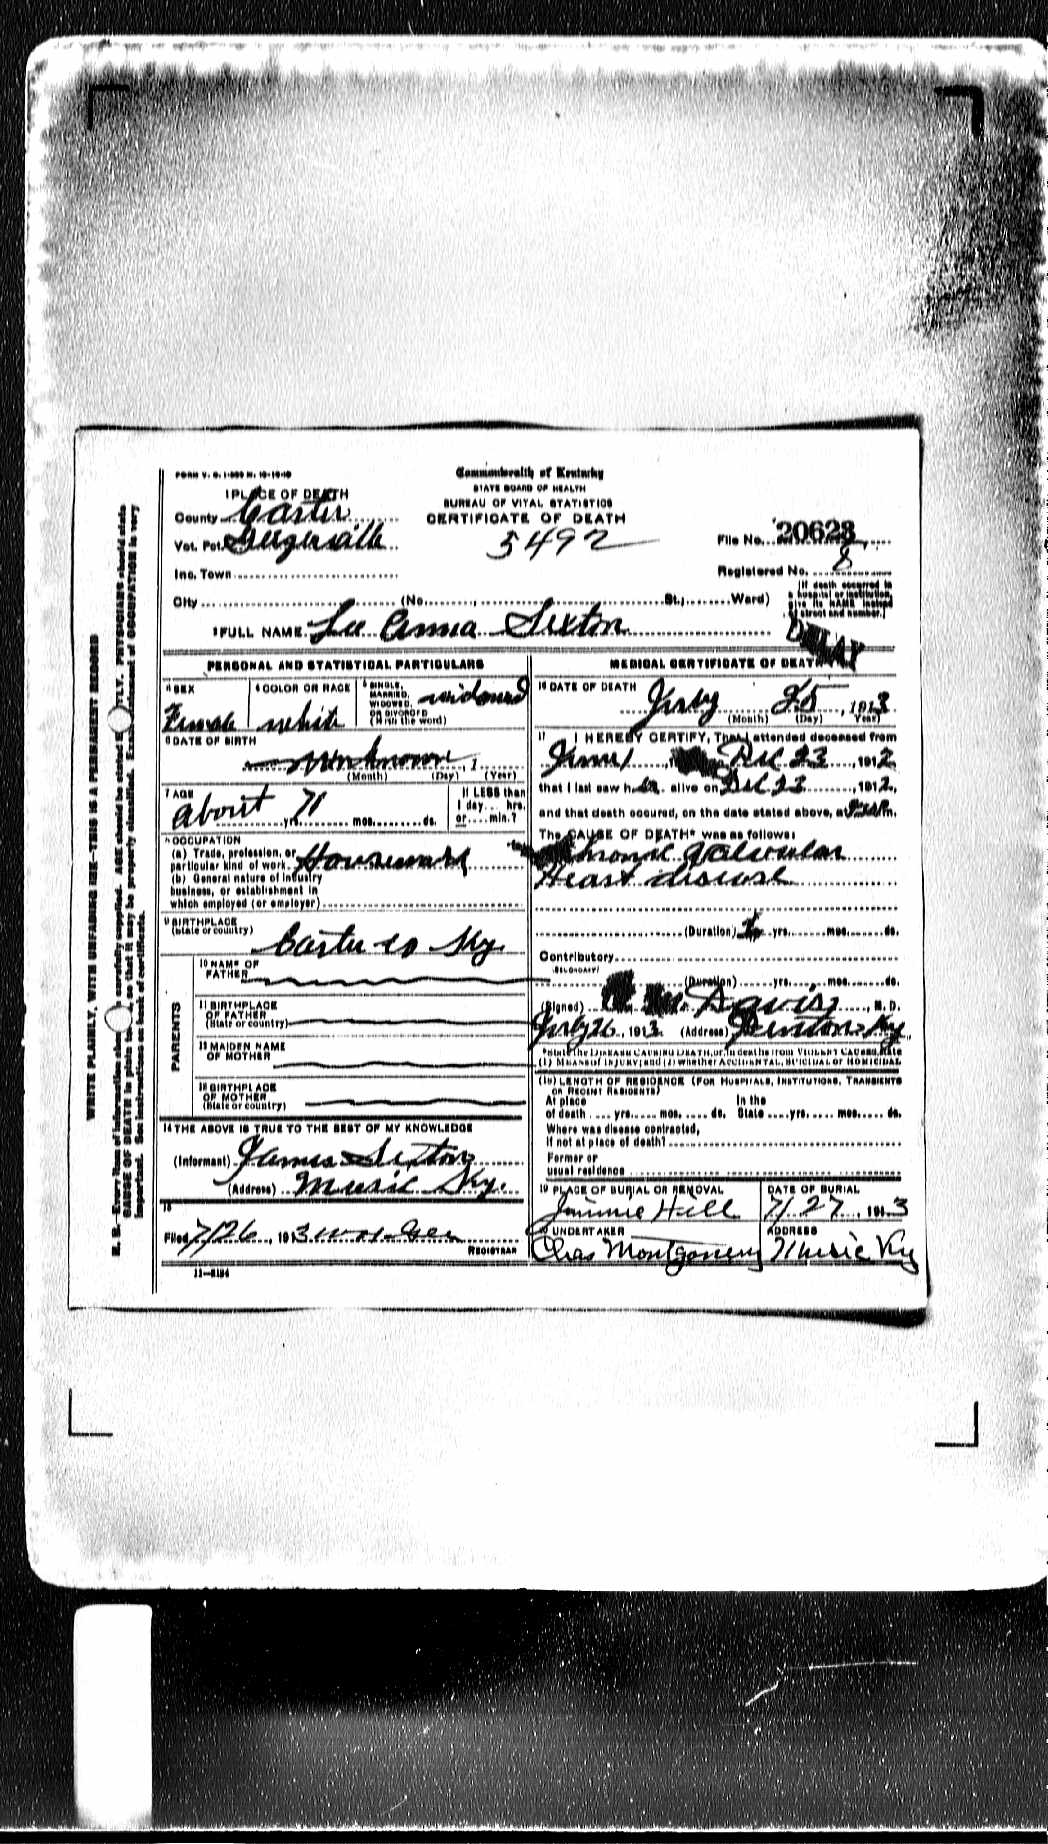 FORM V. S. 1-
Commonwealth of Kentucky
STATE BOARD OF HEALTH
BUREAU OF VITAL STATISTICS
CERTIFICATE OF DEATH
1 PLACE OF DEATH
County Carter
Vot. Pct.
Inc. Town
City (No. , St.; Ward)
5492
File No. 20628
Registered No. 8
(If death occurred in
a hospital or institution,
give its NAME instead
of street and number.)
2 FULL NAME Lee Anna Sexton
DELAY
PERSONAL AND STATISTICAL PARTICULARS
3 SEX
Female
4 COLOR OR RACE
white
5 SINGLE,
MARRIED,
WIDOWED,
OR DIVORCED
(Write the word)
widowed
6 DATE OF BIRTH
unknown , 1
(Month) (Day) (Year)
7 AGE
about 71
yrs. mos. ds.
If LESS than
1 day, hrs.
or min.?
8 OCCUPATION
(a) Trade, profession, or
particular kind of work
(b) General nature of industry
business, or establishment in
which employed (or employer)
9 BIRTHPLACE
(State or country)
Carter co Ky.
PARENTS
10 NAME OF
FATHER
11 BIRTHPLACE
OF FATHER
(State or country)
12 MAIDEN NAME
OF MOTHER
13 BIRTHPLACE
OF MOTHER
(State or country)
14 THE ABOVE IS TRUE TO THE BEST OF MY KNOWLEDGE
(Informant) James Sexton
(Address) Music Ky.
15
Filed 7/26, 1913 W H
REGISTRAR
11-
MEDICAL CERTIFICATE OF DEATH
16 DATE OF DEATH
July 25, 1913
(Month) (Day) (Year)
17 I HEREBY CERTIFY, That I attended deceased from
June 1 Dec 23, 1912
that I last saw her alive on Dec 23, 1912,
and that death occured, on the date stated above, at m.
The CAUSE OF DEATH* was as follows:
Chronic Valvular
Heart disease
(Duration) yrs. mos. ds.
Contributory
(SECONDARY)
(Duration) yrs. mos. ds.
(Signed) Davis, M. D.
July 26, 1913 (Address) Denton Ky
*State the DISEASE CAUSING DEATH, or, in deaths from VIOLENT CAUSES, state
(1) MEANS OF INJURY; and (2) whether ACCIDENTAL, SUICIDAL or HOMICIDAL
(18) LENGTH OF RESIDENCE (FOR HOSPITALS, INSTITUTIONS, TRANSIENTS
OR RECENT RESIDENTS)
At place In the
of death yrs. mos. ds. State yrs. mos. ds.
Where was disease contracted,
If not at place of death?
Former or
usual residence
19 PLACE OF BURIAL OR REMOVAL
Jimmie Hill
DATE OF BURIAL
7/27, 1913
20 UNDERTAKER
Chas Montgomery
ADDRESS
Music Ky
WRITE PLAINLY, WITH UNFADING INK—THIS IS A PERMANENT RECORD
N. B.—Every item of information should be carefully supplied. AGE should be stated EXACTLY. PHYSICIANS should state
CAUSE OF DEATH in plain terms, so that it may be properly classified. Exact statement of OCCUPATION is very
important. See instructions on back of certificate.